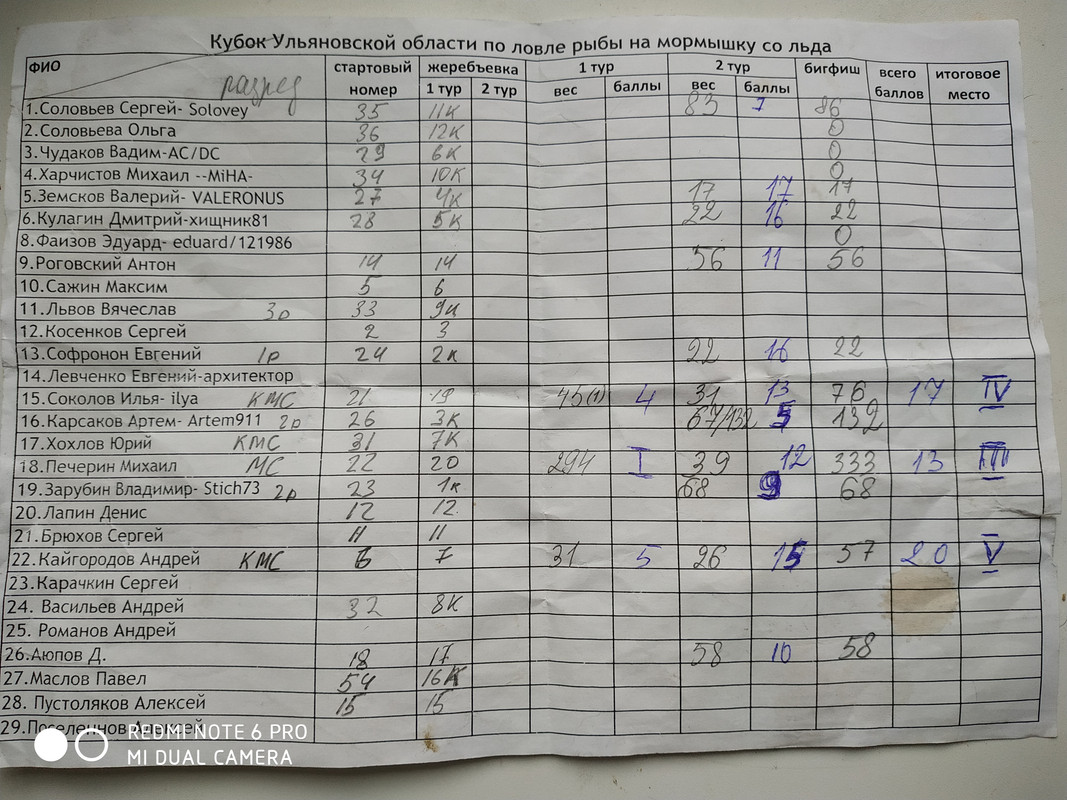 Кубок Ульяновской области по ловле рыбы на мормышку со льда
ФИО разряд стартовый номер жеребъевка 1 тур 2 тур 1 тур вес баллы 2 тур вес баллы бигфиш всего баллов итоговое место
1.Соловьев Сергей- Solovey 35 11К 83 7 86
2.Соловьева Ольга 36 12К 0
3.Чудаков Вадим-AC/DC 29 6К 0
4.Харчистов Михаил --MiHA- 34 10К 0
5.Земсков Валерий- VALERONUS 27 4К 17 17 17
6.Кулагин Дмитрий-хищник81 28 5К 22 16 22
8.Фаизов Эдуард- eduard/121986 0
9.Роговский Антон 14 14 56 11 56
10.Сажин Максим 5 6
11.Львов Вячеслав 3р 33 9к
12.Косенков Сергей 2 3
13.Софронон Евгений 1р 24 2к 22 16 22
14.Левченко Евгений-архитектор
15.Соколов Илья- ilya КМС 21 19 45(1) 4 31 13 76 17 IV
16.Карсаков Артем- Artem911 2р 26 3К 67/132 5 132
17.Хохлов Юрий КМС 31 7К
18.Печерин Михаил МС 22 20 294 I 39 12 333 13 III
19.Зарубин Владимир- Stich73 2р 23 1к 68 9 68
20.Лапин Денис 12 12
21.Брюхов Сергей 11 11
22.Кайгородов Андрей КМС 6 7 31 5 26 15 57 20 V
23.Карачкин Сергей
24. Васильев Андрей 32 8К
25. Романов Андрей
26.Аюпов Д. 18 17 58 10 58
27.Маслов Павел 54 16К
28. Пустоляков Алексей 15 15
29.Поселеннов Алексей
REDMI NOTE 6 PRO
MI DUAL CAMERA